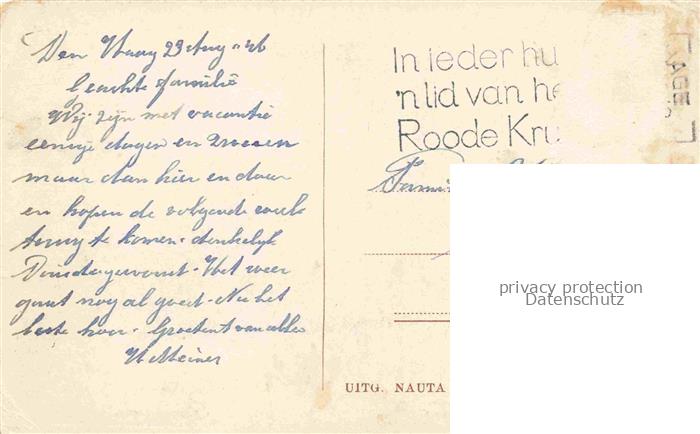 Den Haag 23 Aug - 46
Geachte familie
Wij zijn met vacantie
eenige dagen en
maar dan hier en daar
en hopen de volgende week
terug te komen. denkelijk
Dinsdagavond. Het weer
gaat nog al goed. Nu het
beste hoor. Groeten van allen
In ieder hu
'n lid van he
Roode Kru
AGE
Fami
UITG. NAUTA
privacy protection
Datenschutz